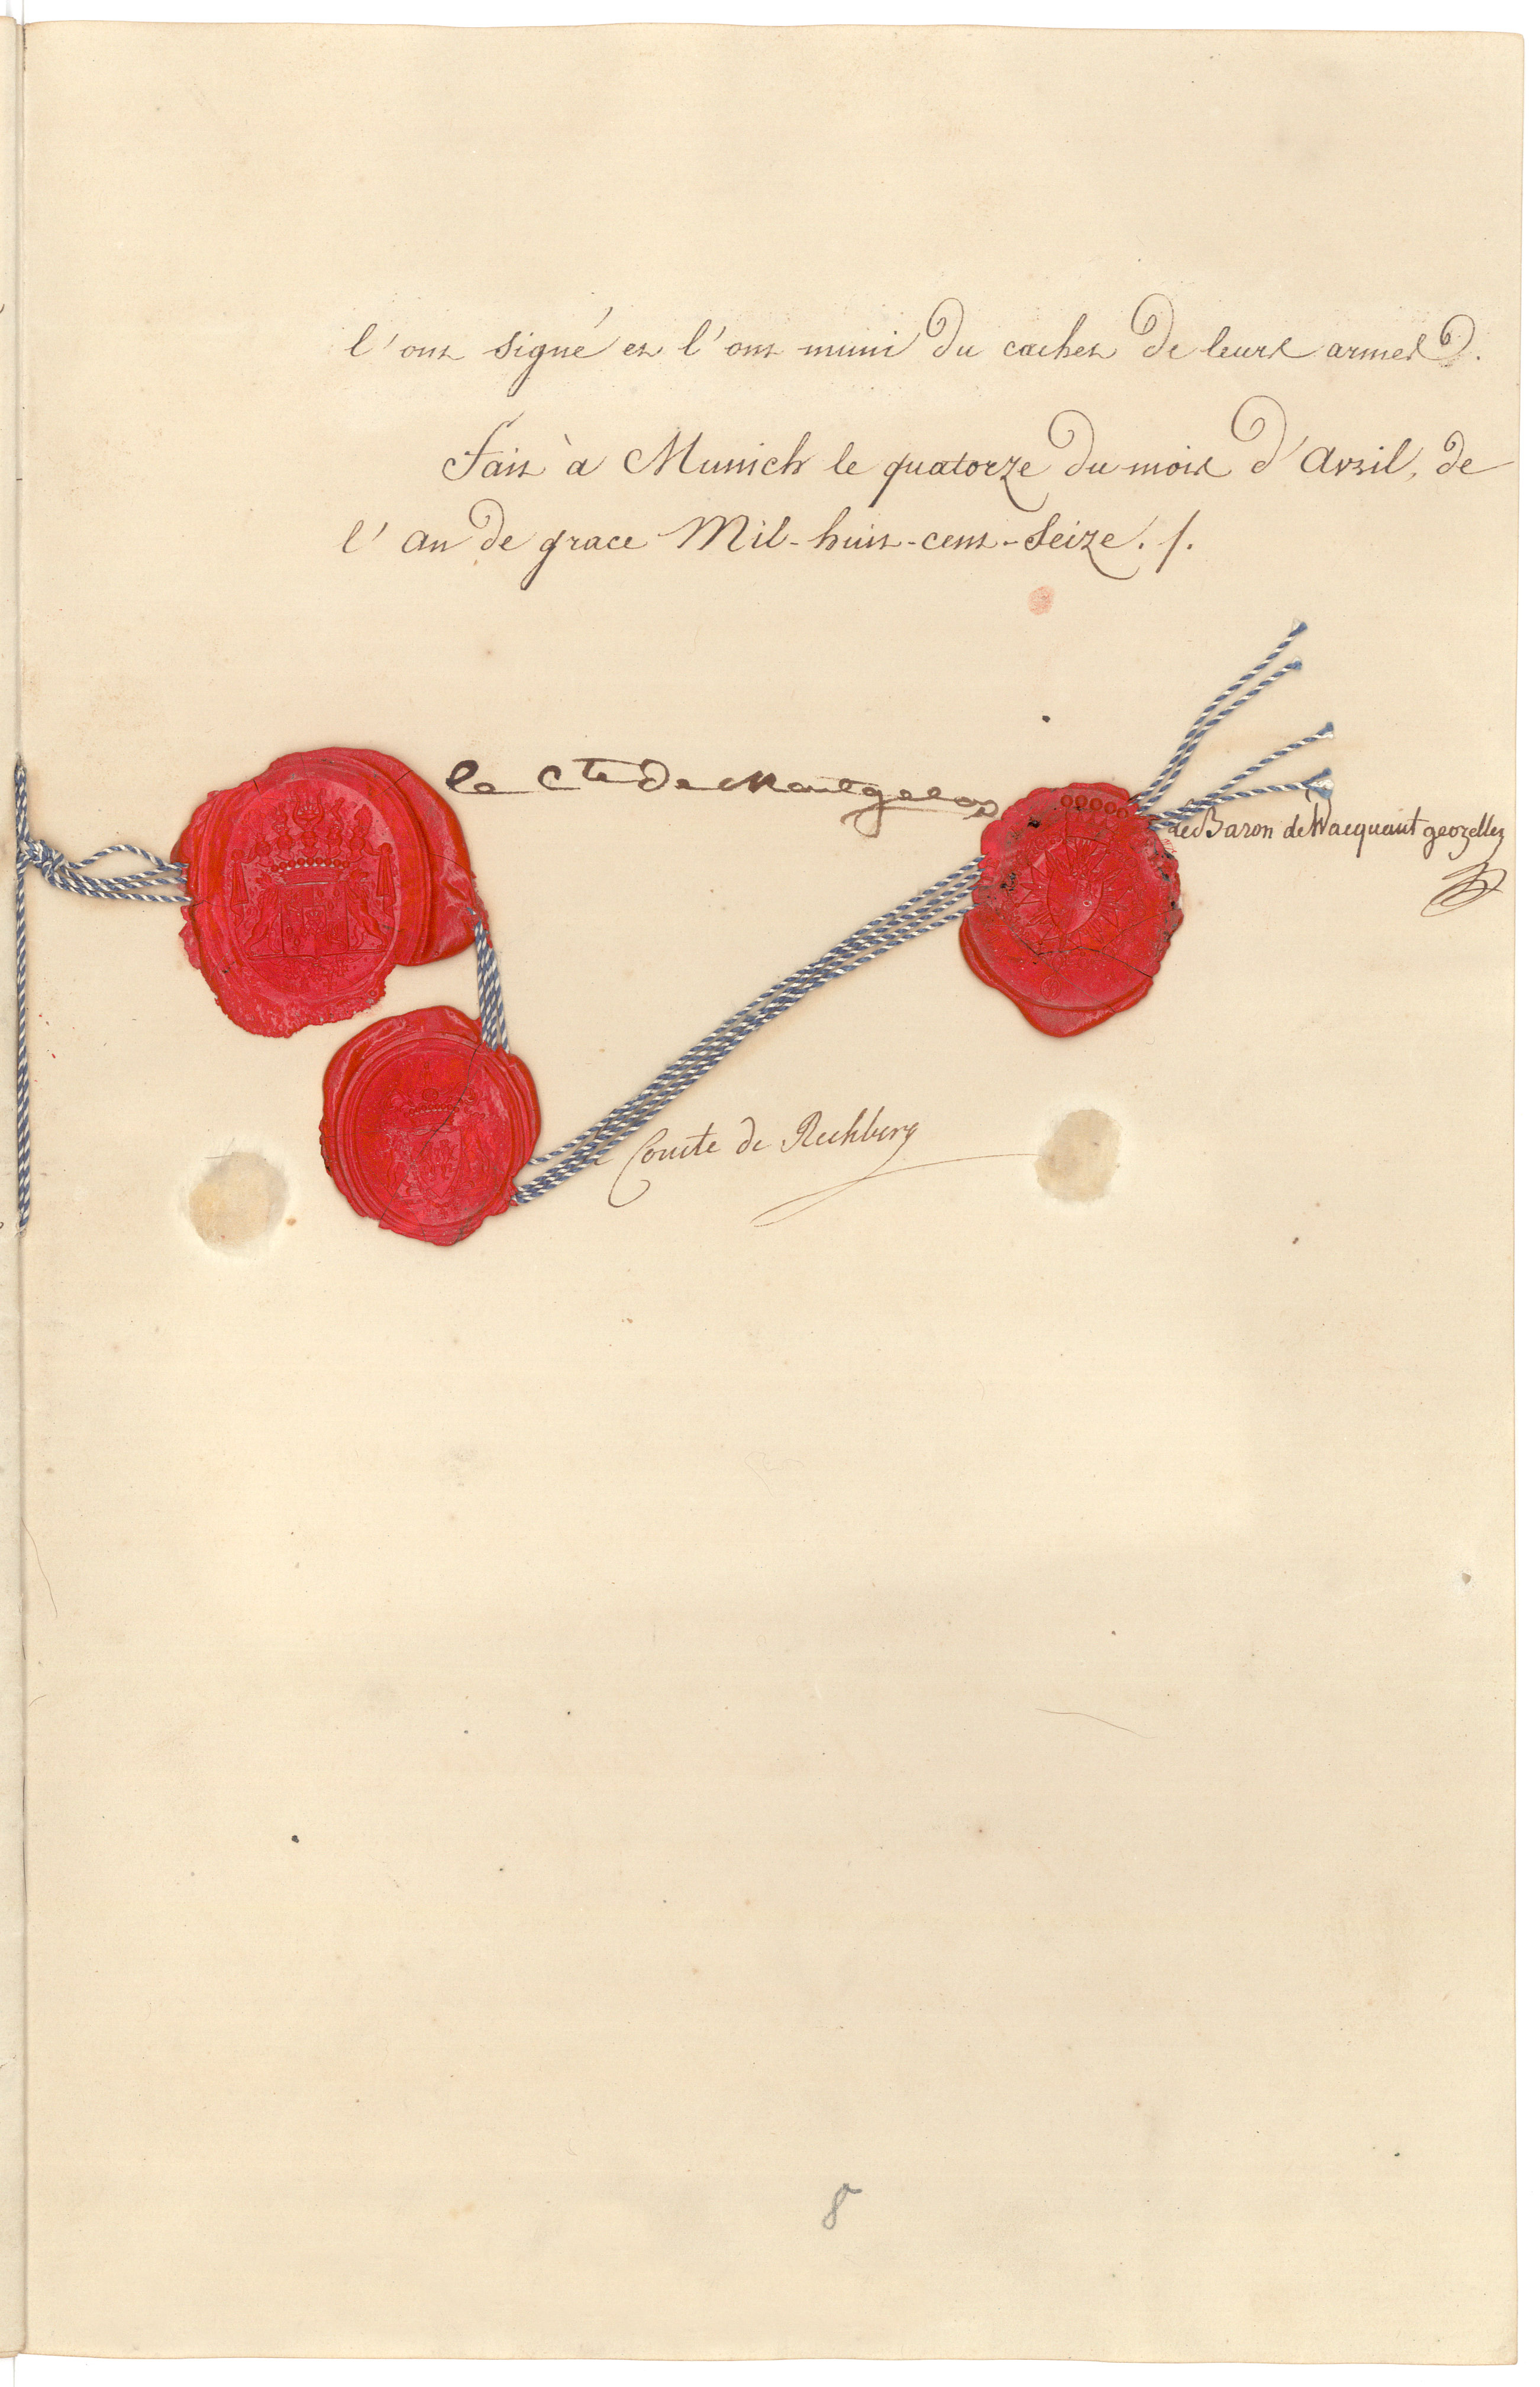 l'ont signé et l'ont muni du cachet de leurs armes.
Fait à Munich le quatorze du mois d'Avril, de
l'an de grace Mil-huit-cent-Seize. /.
le Cte de Montgelas
le Baron de Wacquant geozelles
le Comte de Rechberg
8